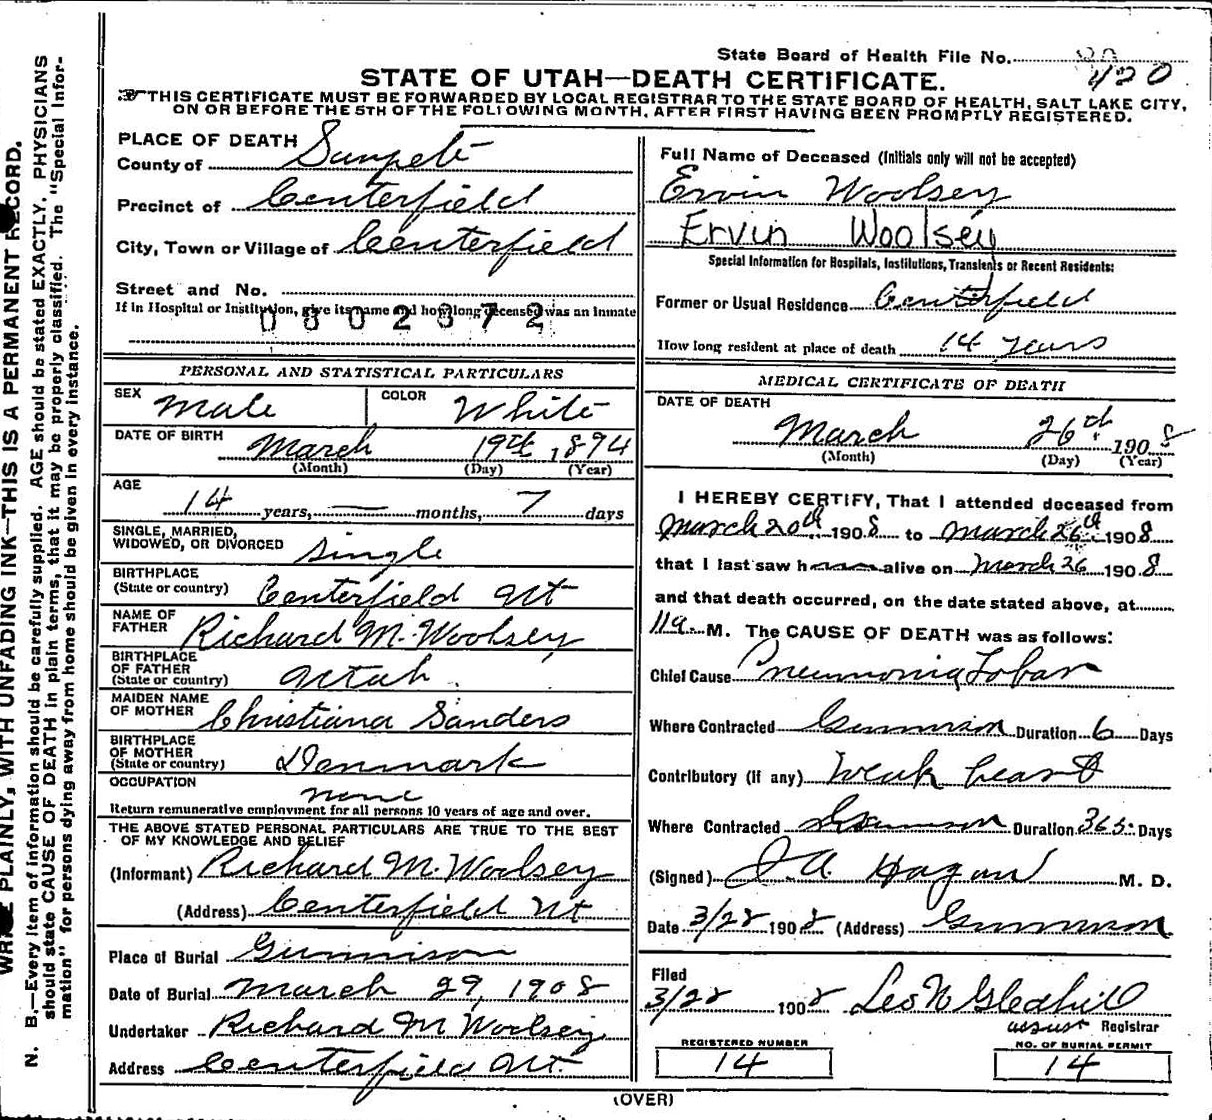 State Board of Health File No.
420
STATE OF UTAH—DEATH CERTIFICATE.
THIS CERTIFICATE MUST BE FORWARDED BY LOCAL REGISTRAR TO THE STATE BOARD OF HEALTH, SALT LAKE CITY,
ON OR BEFORE THE 5TH OF THE FOLLOWING MONTH, AFTER FIRST HAVING BEEN PROMPTLY REGISTERED.
WRITE PLAINLY, WITH UNFADING INK—THIS IS A PERMANENT RECORD.
N. B.—Every item of information should be carefully supplied. AGE should be stated EXACTLY. PHYSICIANS
should state CAUSE OF DEATH in plain terms, that it may be properly classified. The "Special Infor-
mation" for persons dying away from home should be given in every instance.
PLACE OF DEATH
County of Sanpete
Precinct of Centerfield
City, Town or Village of Centerfield
Street and No.
If in Hospital or Institution, give its name and how long deceased was an inmate
0802372
PERSONAL AND STATISTICAL PARTICULARS
SEX Male COLOR White
DATE OF BIRTH March 19th, 1894
(Month) (Day) (Year)
AGE
14 years, — months, 7 days
SINGLE, MARRIED,
WIDOWED, OR DIVORCED Single
BIRTHPLACE
(State or country) Centerfield Ut
NAME OF
FATHER Richard M. Woolsey
BIRTHPLACE
OF FATHER
(State or country) Utah.
MAIDEN NAME
OF MOTHER Christiana Sanders
BIRTHPLACE
OF MOTHER
(State or country) Denmark
OCCUPATION none
Return remunerative employment for all persons 10 years of age and over.
THE ABOVE STATED PERSONAL PARTICULARS ARE TRUE TO THE BEST
OF MY KNOWLEDGE AND BELIEF
(Informant) Richard M. Woolsey
(Address) Centerfield Ut
Place of Burial Gunnison
Date of Burial March 29, 1908
Undertaker Richard M Woolsey
Address Centerfield Ut.
Full Name of Deceased (Initials only will not be accepted)
Ervin Woolsey
Ervin Woolsey
Special Information for Hospitals, Institutions, Transients or Recent Residents:
Former or Usual Residence Centerfield
How long resident at place of death 14 years
MEDICAL CERTIFICATE OF DEATH
DATE OF DEATH
March 26th, 1908
(Month) (Day) (Year)
I HEREBY CERTIFY, That I attended deceased from
March 20th 1908 to March 26th 1908
that I last saw h alive on March 26 1908
and that death occurred, on the date stated above, at
11 a. M. The CAUSE OF DEATH was as follows:
Chief Cause Pneumonia Lobar
Where Contracted Gunnison Duration 6 Days
Contributory (if any) Weak heart
Where Contracted Gunnison Duration 365 Days
(Signed) J. A. Hagan M. D.
Date 3/28 1908 (Address) Gunnison
Filed
3/28 1908 Leo N Gledhill
Registrar
REGISTERED NUMBER
14
NO. OF BURIAL PERMIT
14
(OVER)